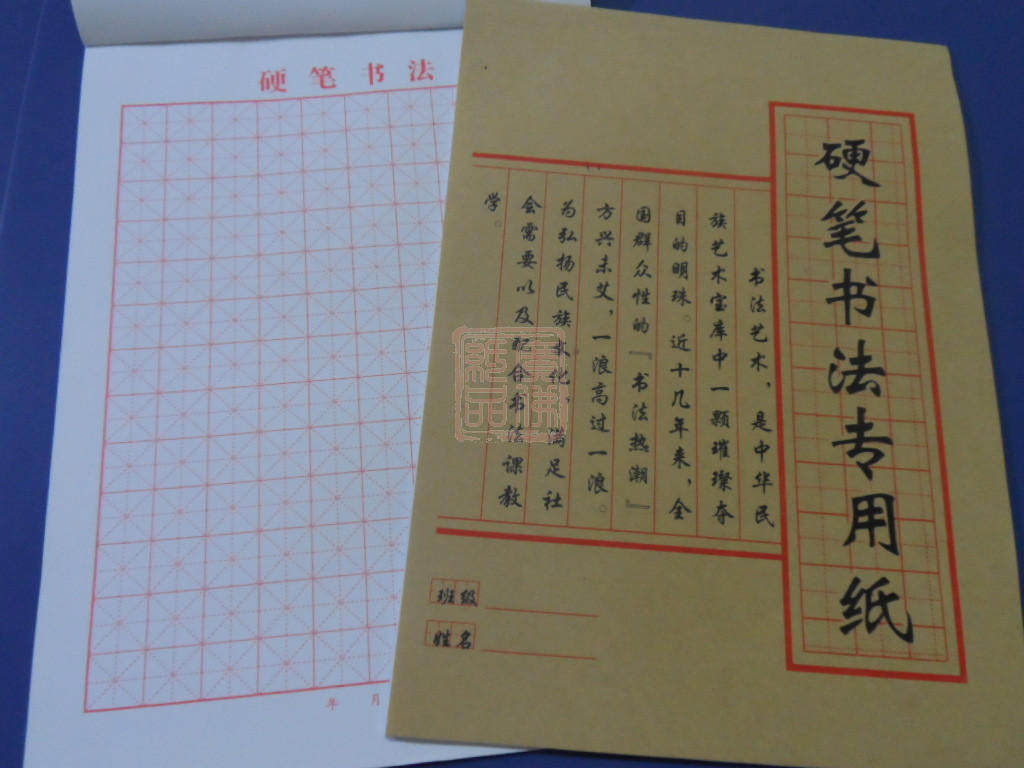 硬笔书法
年 月
硬笔书法专用纸
书法艺术，是中华民
族艺术宝库中一颗璀璨夺
目的明珠。近十几年来，全
国群众性的『书法热潮』
方兴未艾，一浪高过一浪。
为弘扬民族文化，满足社
会需要以及配合书法课教
学。
班级
姓名